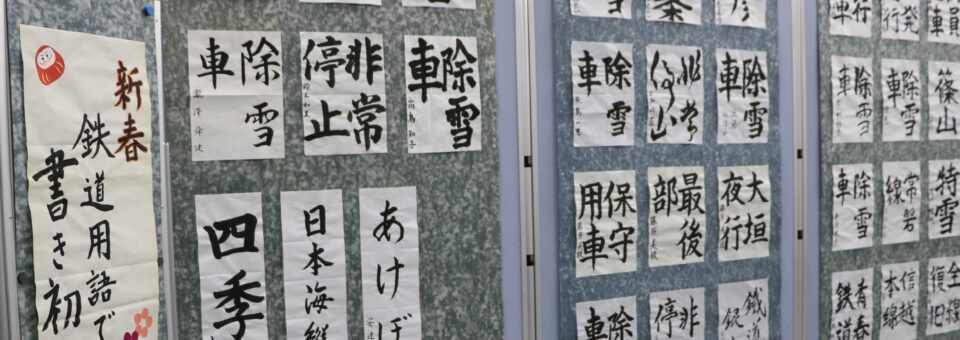 新春
鉄道用語で
書き初
除雪
車
非常
停止
除雪
車
四季
日本海縦
あけぼ
除雪
車
非常
停止
除雪
車
保守
用車
最後
部
大垣
夜行
除
車
非
停
鐵道
除雪
車
除雪
車
篠山
除雪
車
常磐
線
特雪
青春
鉄道
信越
本線
全線
復旧